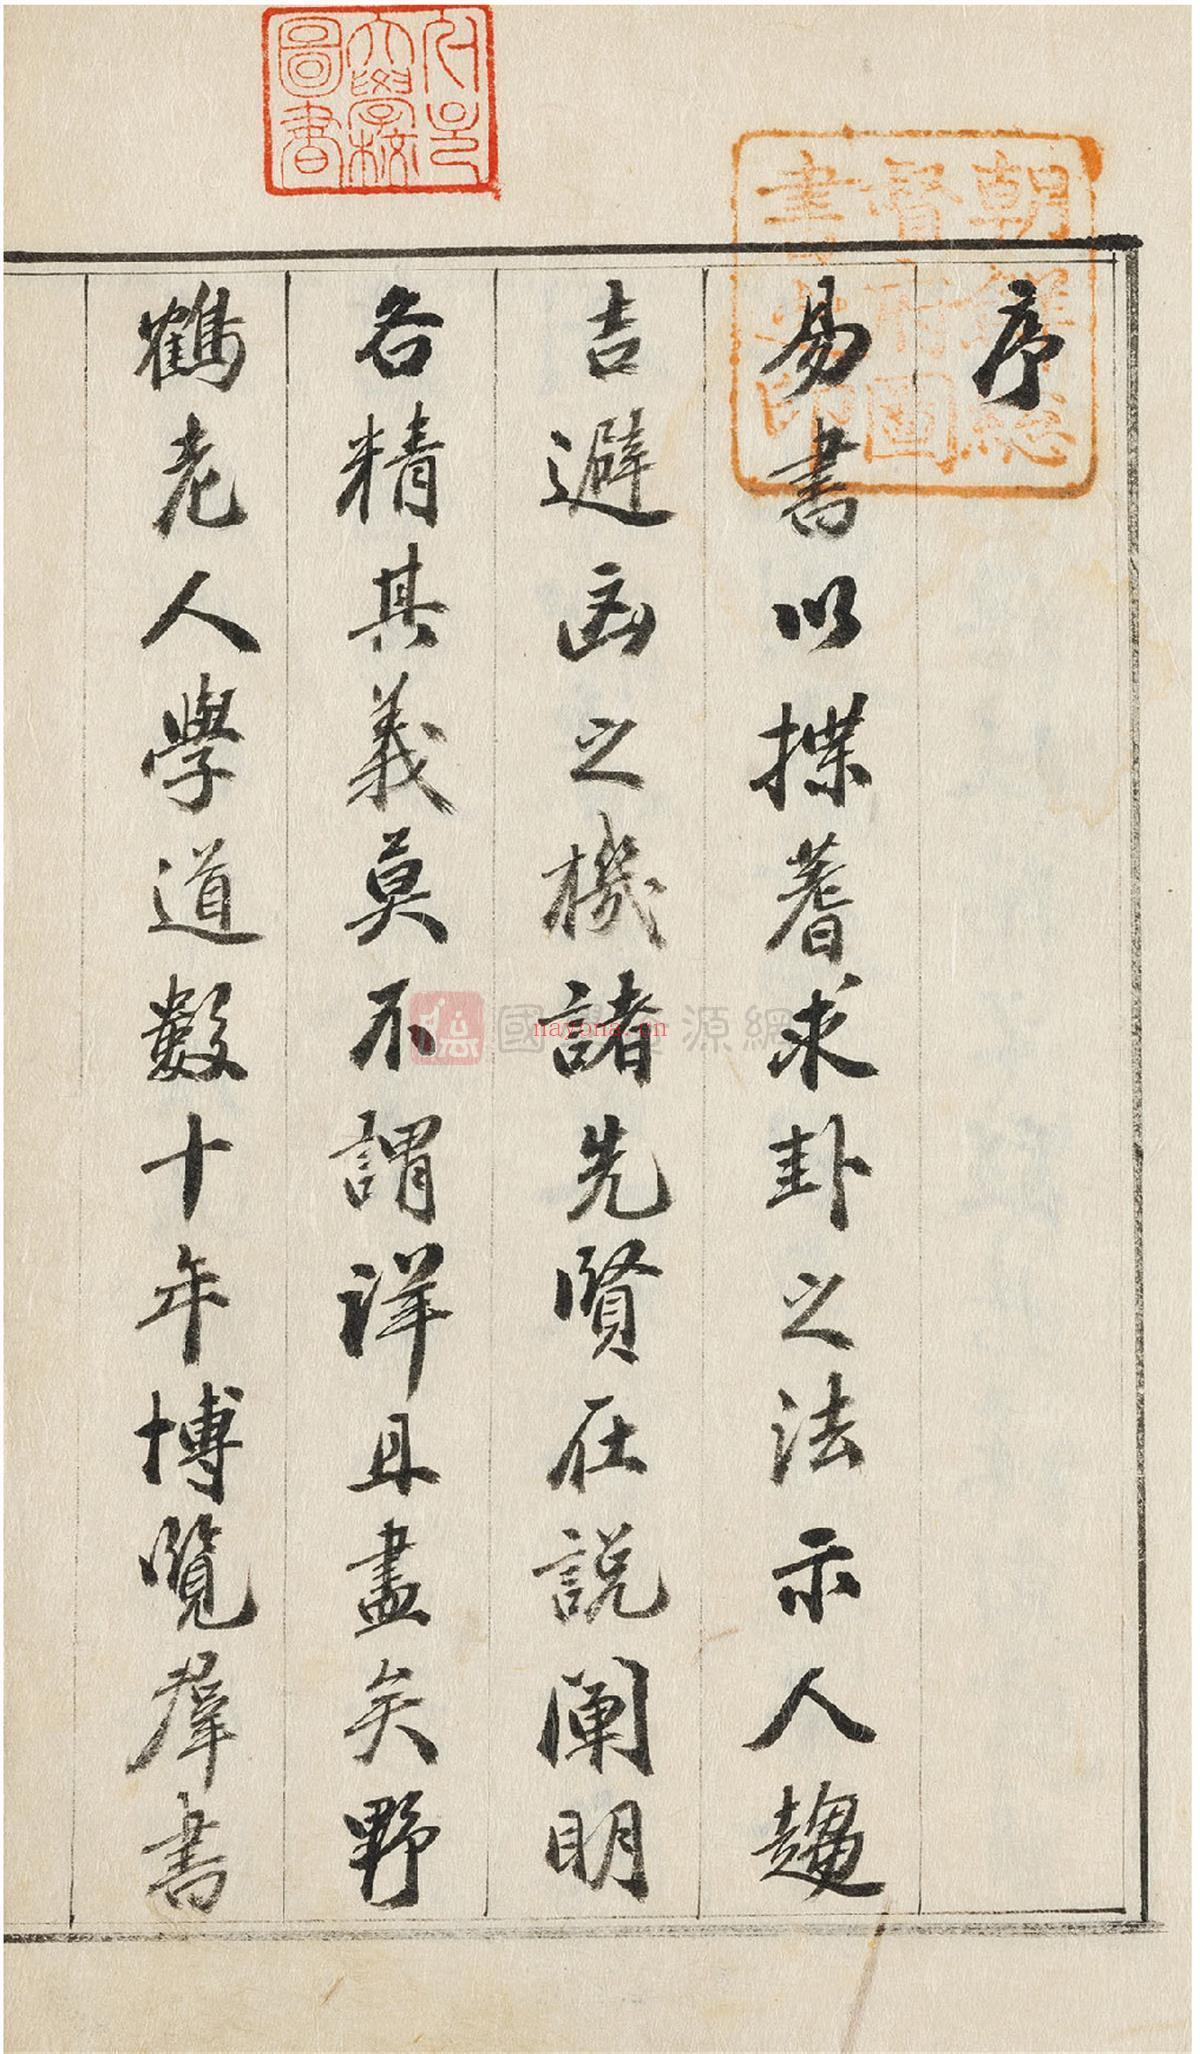 序
易書以揲蓍求卦之法示人趨
吉避凶之機諸先賢在説闡明
各精其義莫不謂詳且盡矣野
鶴老人學道數十年博覽羣書
朝鮮總
督府圖
書之印
大學校
圖書
國學資源網
nayona.cn